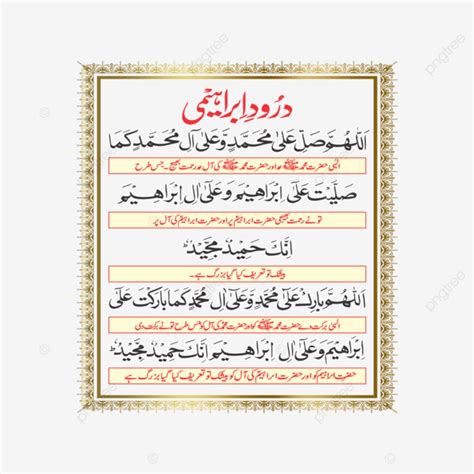 درود ابراہیمی
اَللّٰهُمَّ صَلِّ عَلٰى مُحَمَّدٍ وَّعَلٰٓى اٰلِ مُحَمَّدٍ كَمَا
الٰہی حضرت محمد ﷺ اور حضرت محمد ﷺ کی آل رحمت بھیج۔ جس طرح
صَلَّيْتَ عَلٰٓى اِبْرَاهِيْمَ وَعَلٰٓى اٰلِ اِبْرَاهِيْمَ
تو نے رحمت بھیجی حضرت ابراہیمؑ پر اور حضرت ابراہیمؑ کی آل پر
اِنَّكَ حَمِيْدٌ مَّجِيْدٌ
بیشک تو تعریف کیا گیا بزرگ ہے۔
اَللّٰهُمَّ بَارِكْ عَلٰى مُحَمَّدٍ وَّعَلٰٓى اٰلِ مُحَمَّدٍ كَمَا بَارَكْتَ عَلٰٓى
الٰہی برکت دے حضرت محمد ﷺ کو اور حضرت محمد کی آل کو جس طرح تو نے برکت دی
اِبْرَاهِيْمَ وَعَلٰٓى اٰلِ اِبْرَاهِيْمَ اِنَّكَ حَمِيْدٌ مَّجِيْدٌ
حضرت ابراہیم کو اور حضرت ابراہیم کی آل کو بیشک تو تعریف کیا گیا بزرگ ہے
pngtree
pngtree
pngtree